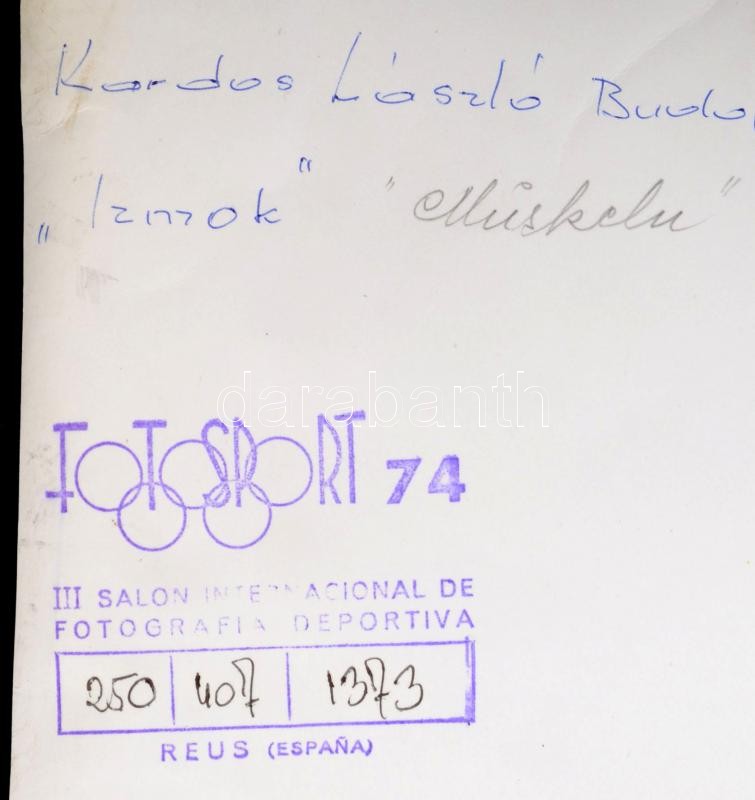 Kardos László Budap
„Izmok" "Muskeln"
darabanth
FOTOSPORT 74
III SALON INTERNACIONAL DE
FOTOGRAFIA DEPORTIVA
250 407 1373
REUS (ESPAÑA)